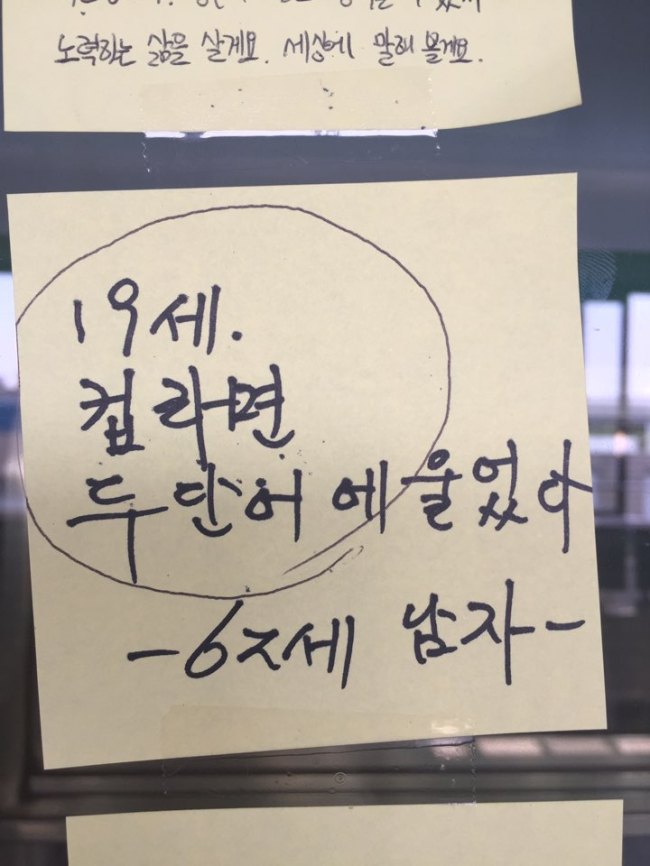 노력하는 삶을 살게요. 세상에 말해 볼게요.
19세.
컵라면
두 단어에 울었다
-62세 남자-